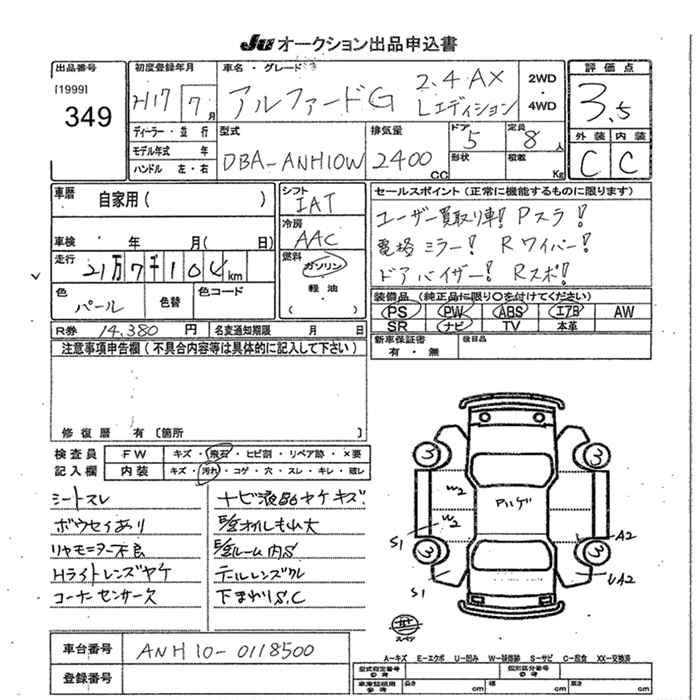 JU オークション出品申込書
出品番号
[1999]
349
初度登録年月
H17 7 月
車名・グレード
アルファードG 2.4 AX
Lエディション
2WD
・
4WD
評価点
3.5
外装 内装
C C
ディーラー・並行
モデル年式 年
ハンドル 左・右
型式
DBA-ANH10W
排気量
2400 cc
ドア
5
定員
8 人
形状
積載
Kg
車歴 自家用( )
車検 年 月( 日)
走行 21万7千104km
色
パール
色替
色コード
シフト
IAT
冷房
AAC
燃料
ガソリン
軽油
( )
セールスポイント(正常に機能するものに限ります)
ユーザー買取り車! Pスラ!
電格ミラー! Rワイパー!
ドアバイザー! Rスポ!
装備品(純正品に限り○を付けてください)
PS PW ABS エアB AW
SR ナビ TV 本革
R券 14,380 円
名変通知期限 月 日
新車保証書
有・無
後日品
注意事項申告欄(不具合内容等は具体的に記入して下さい)
修復歴 有〔箇所 〕
検査員
記入欄
FW キズ・飛石・ヒビ割・リペア跡・×要
内装 キズ・汚れ・コゲ・穴・スレ・キレ・破レ
シートスレ
ボウセイあり
リヤモニター不良
Hライトレンズヤケ
コーナーセンサー欠
ナビ液晶ヤケキズ
テールレンズワレ
下まわりS,C
3
3
3
3
W2
W2
S1
S1
A2
UA2
スペア
車台番号 ANH10-0118500
登録番号
A-キズ E-エクボ U-凹み W-補修跡 S-サビ C-腐食 XX-交換済
型式指定番号
参考
類別区分番号
参考
車庫証明用
参考
長さ cm 幅 cm 高さ cm